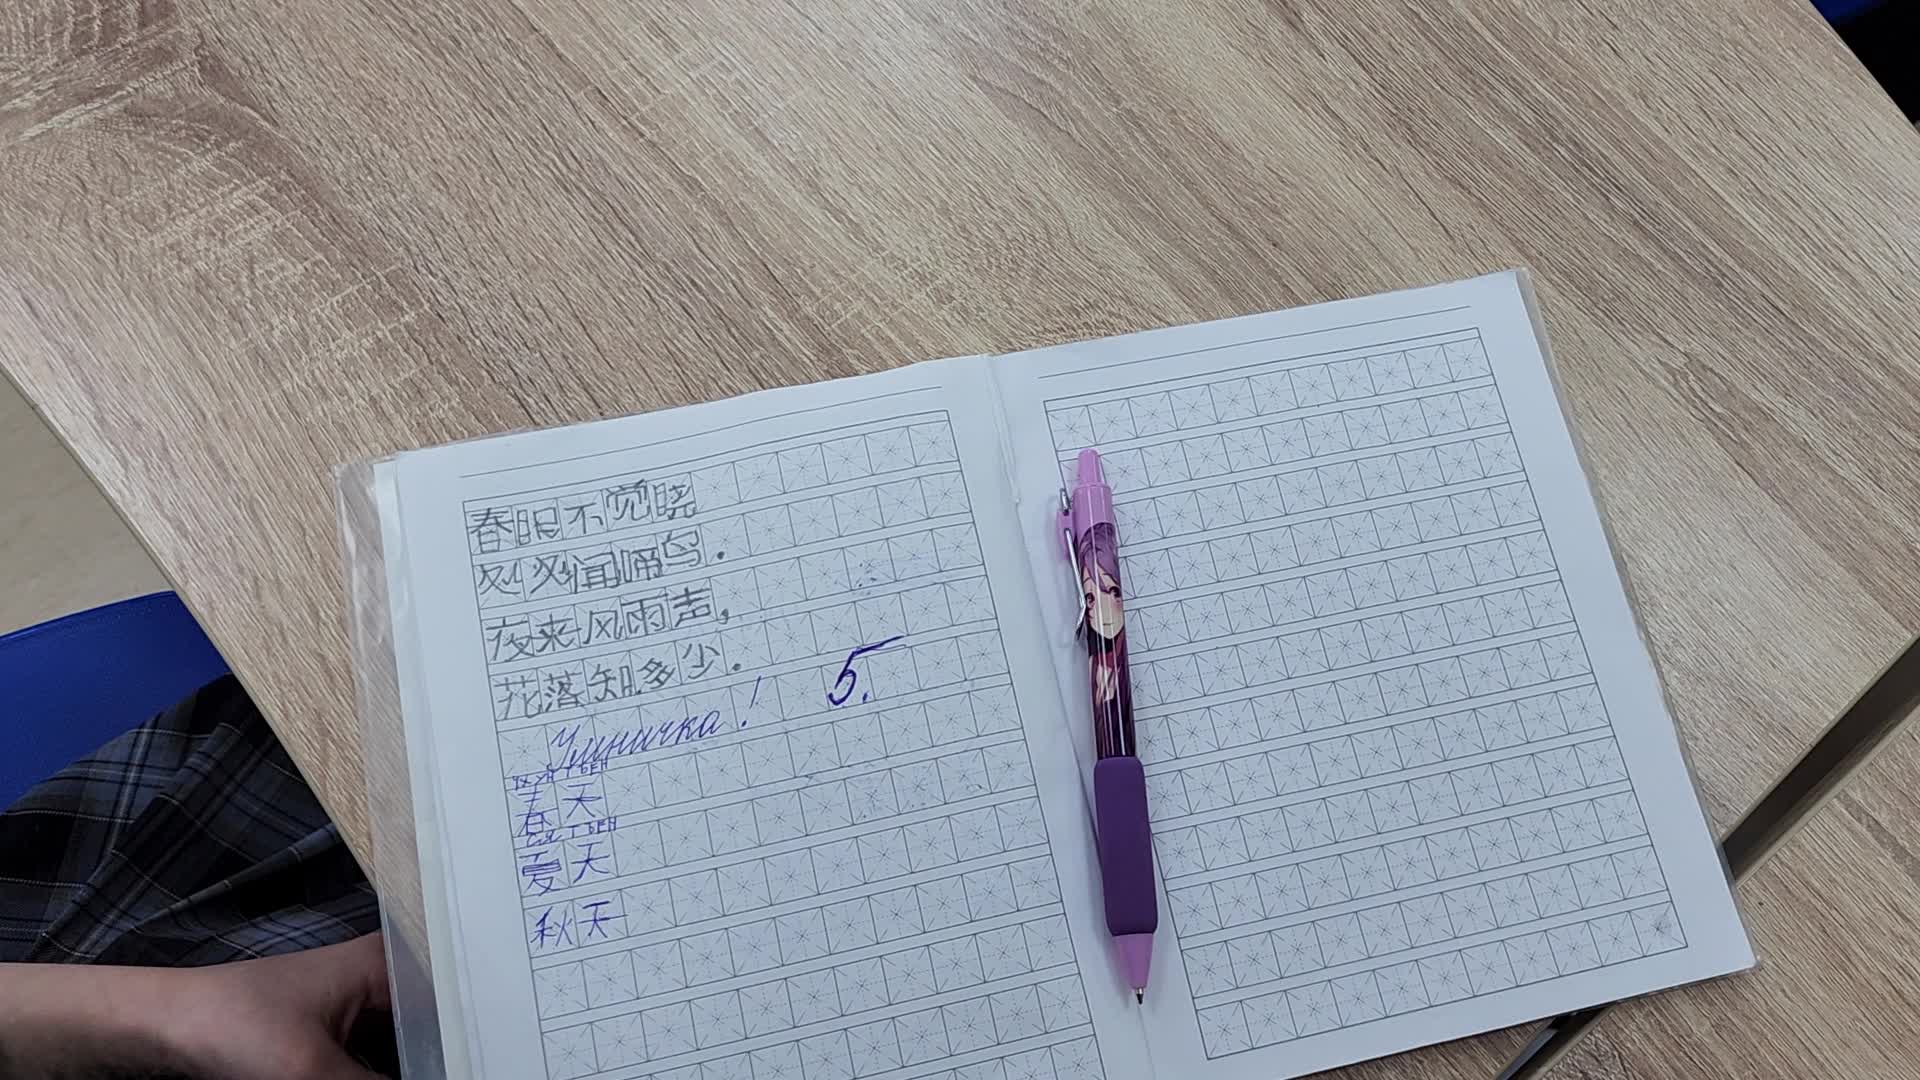 春眠不觉晓
处处闻啼鸟.
夜来风雨声,
花落知多少.
5.
Умничка!
чунь тьен
春天
ся тьен
夏天
秋天